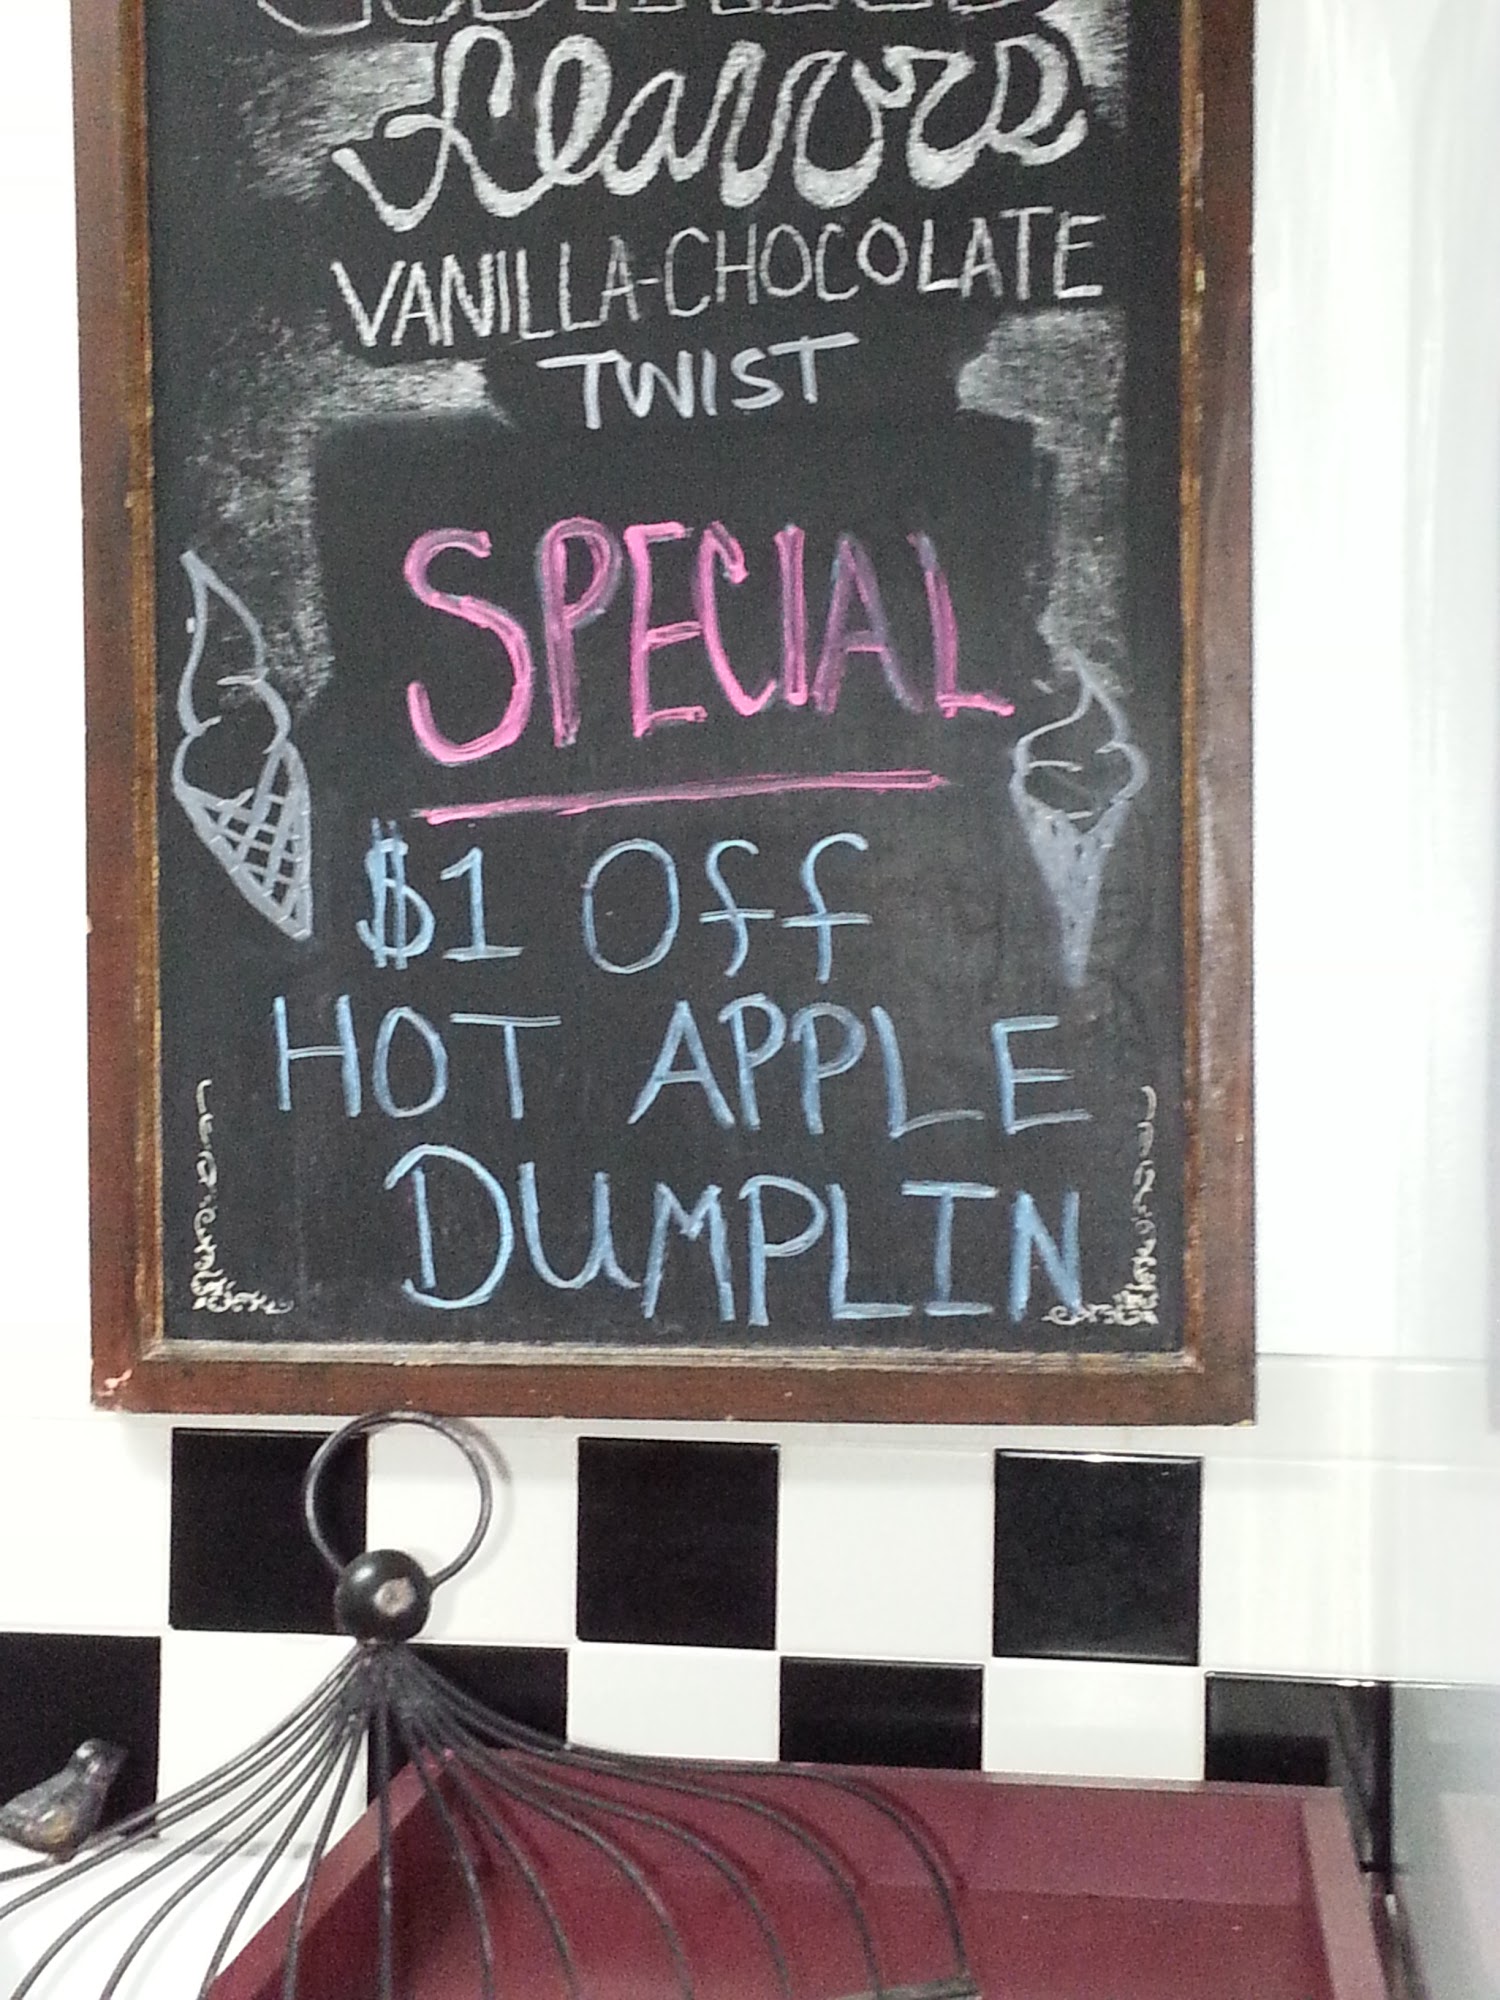 Flavors
VANILLA-CHOCOLATE
TWIST
SPECIAL
$1 Off
HOT APPLE
DUMPLIN